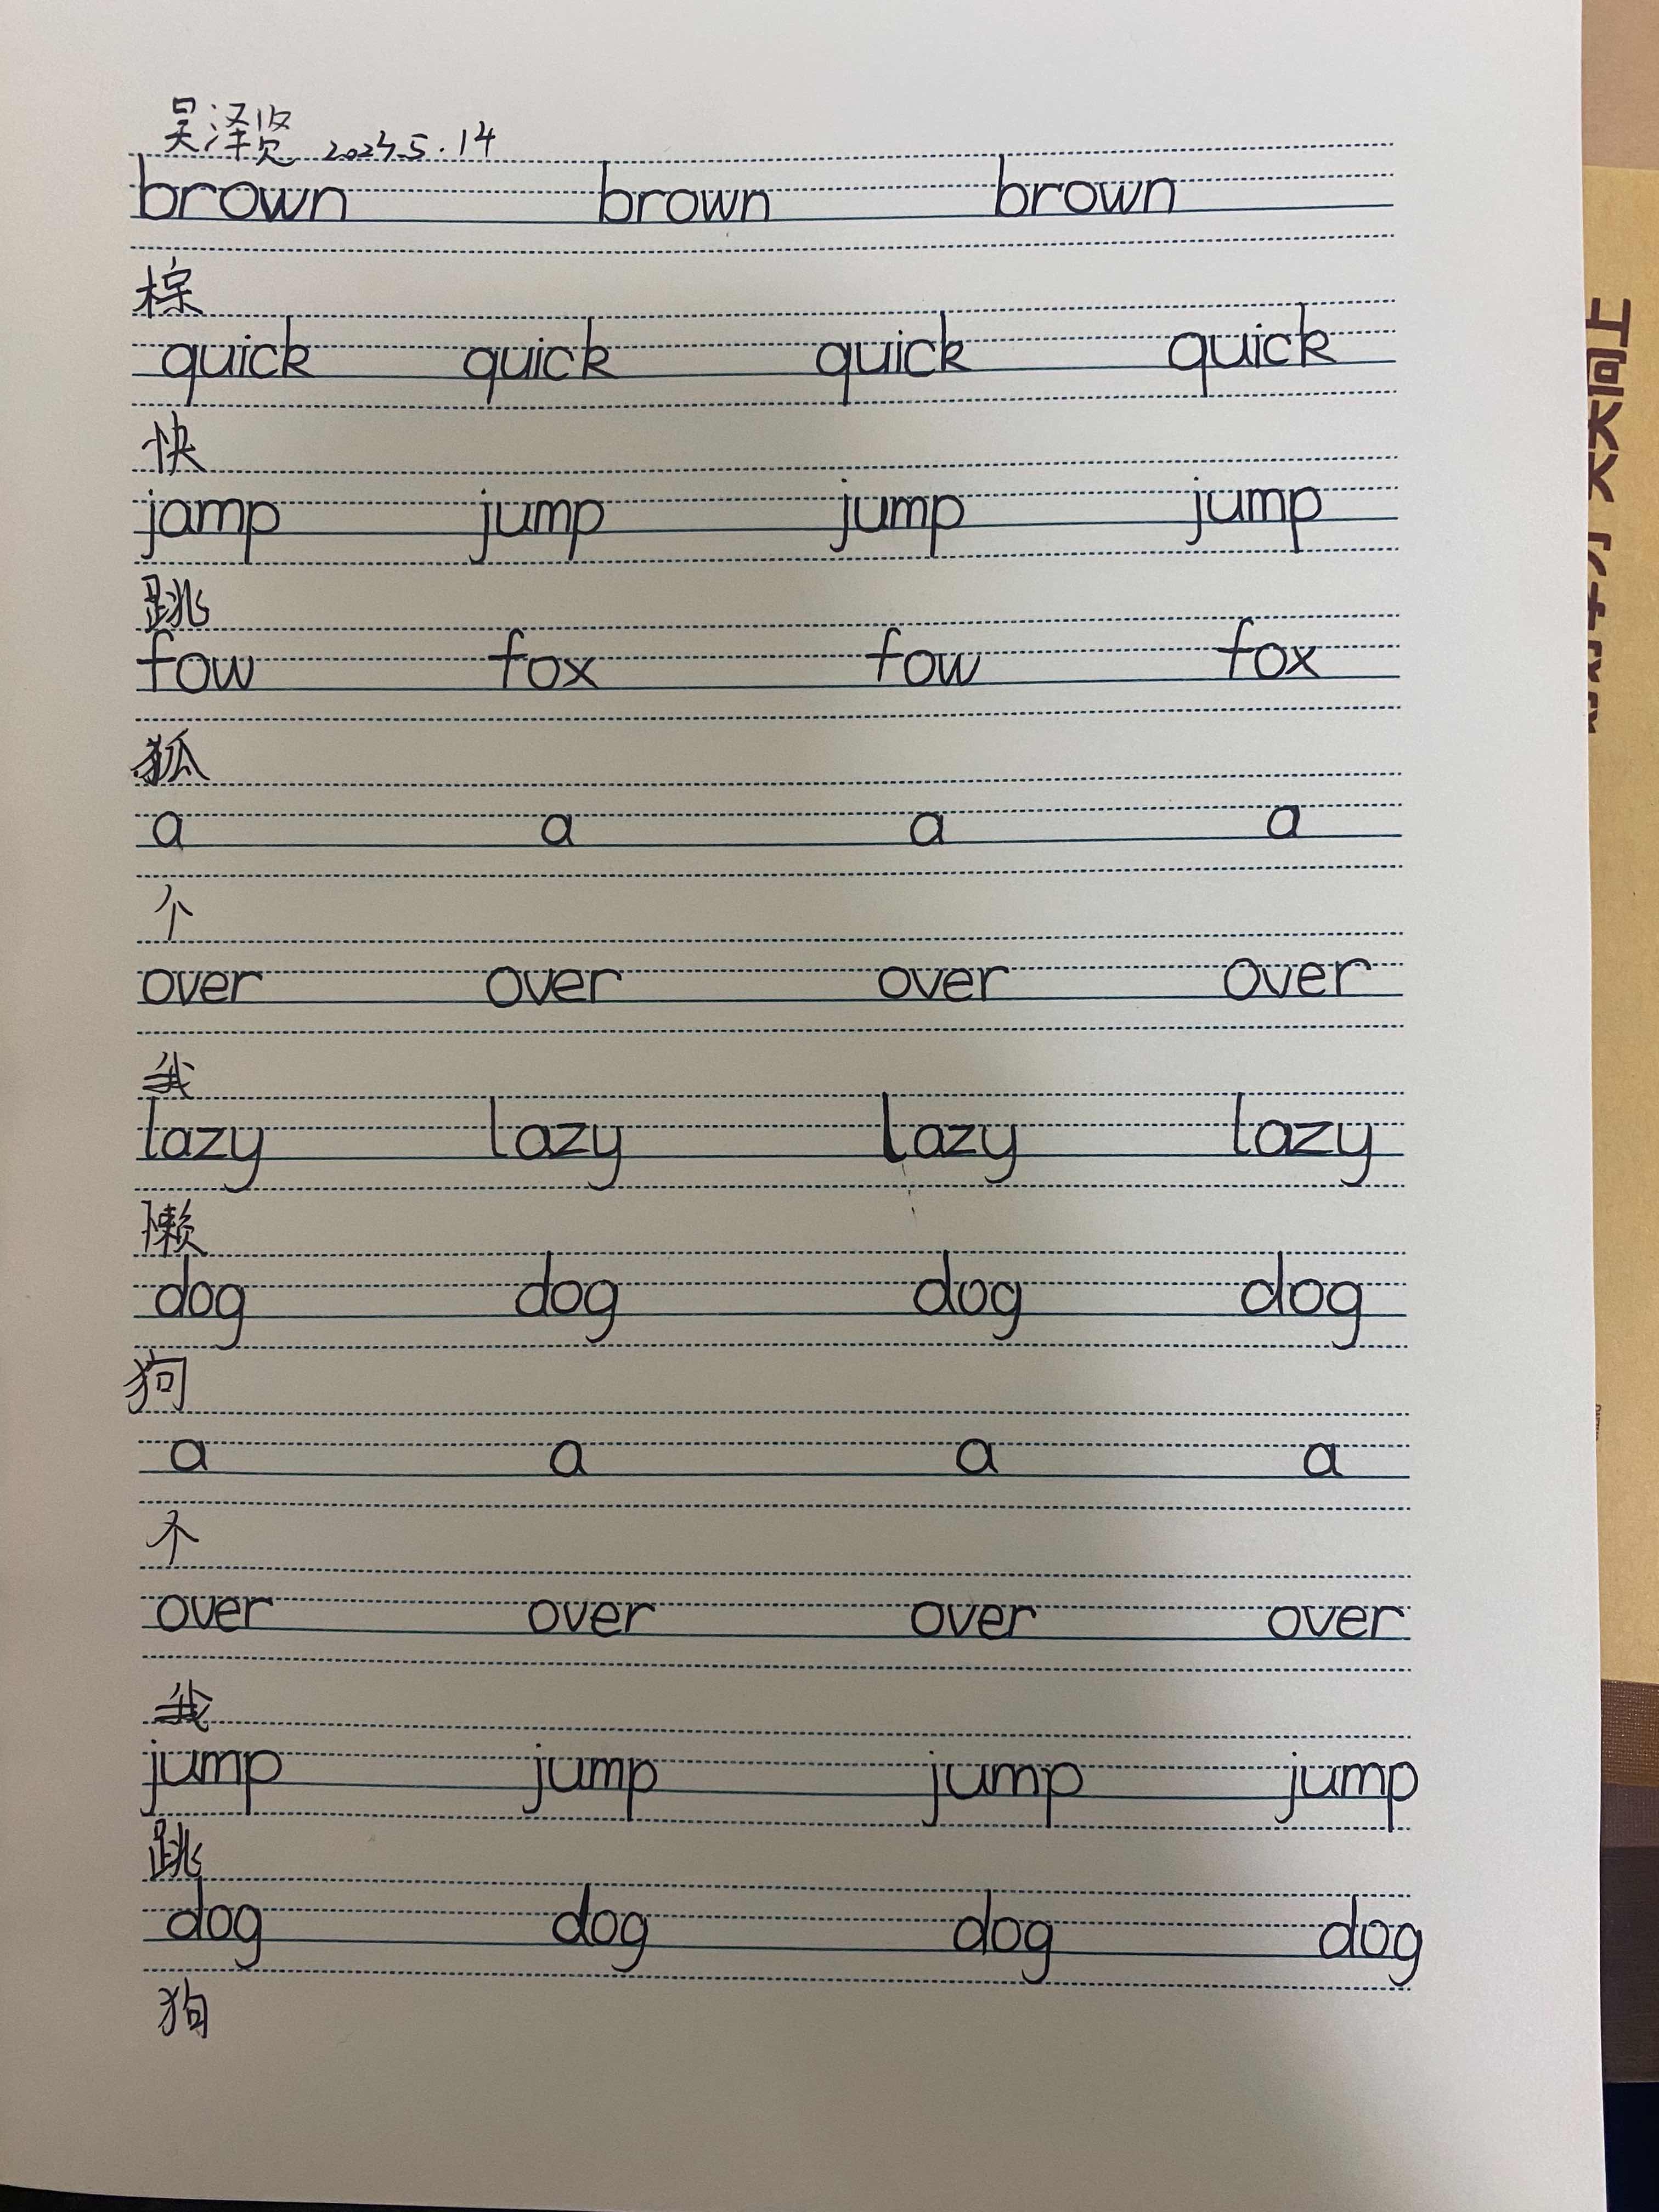 吴泽贤 2024.5.14
brown brown brown
棕
quick quick quick quick
快
jamp jump jump jump
跳
fow fox fow fox
狐
a a a a
个
over over over over
我
lazy lazy lazy lazy
懒
dog dog dog dog
狗
a a a a
个
over over over over
我
jump jump jump jump
跳
dog dog dog dog
狗
天天向上